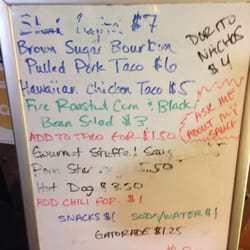 $7
Brown Sugar Bourbon
Pulled Pork Taco $6
Hawaiian Chicken Taco $5
Fire Roasted Corn & Black
Bean Salad $3
ADD TO TACO FOR $1.50
Gourmet Stuffed
Porn Star .50
Hot Dog $3.50
ADD CHILI FOR $1
SNACKS $1 SODA/WATER $1
GATORADE $1.25
DORITO
NACHOS
$4
ASK ME
ABOUT MY